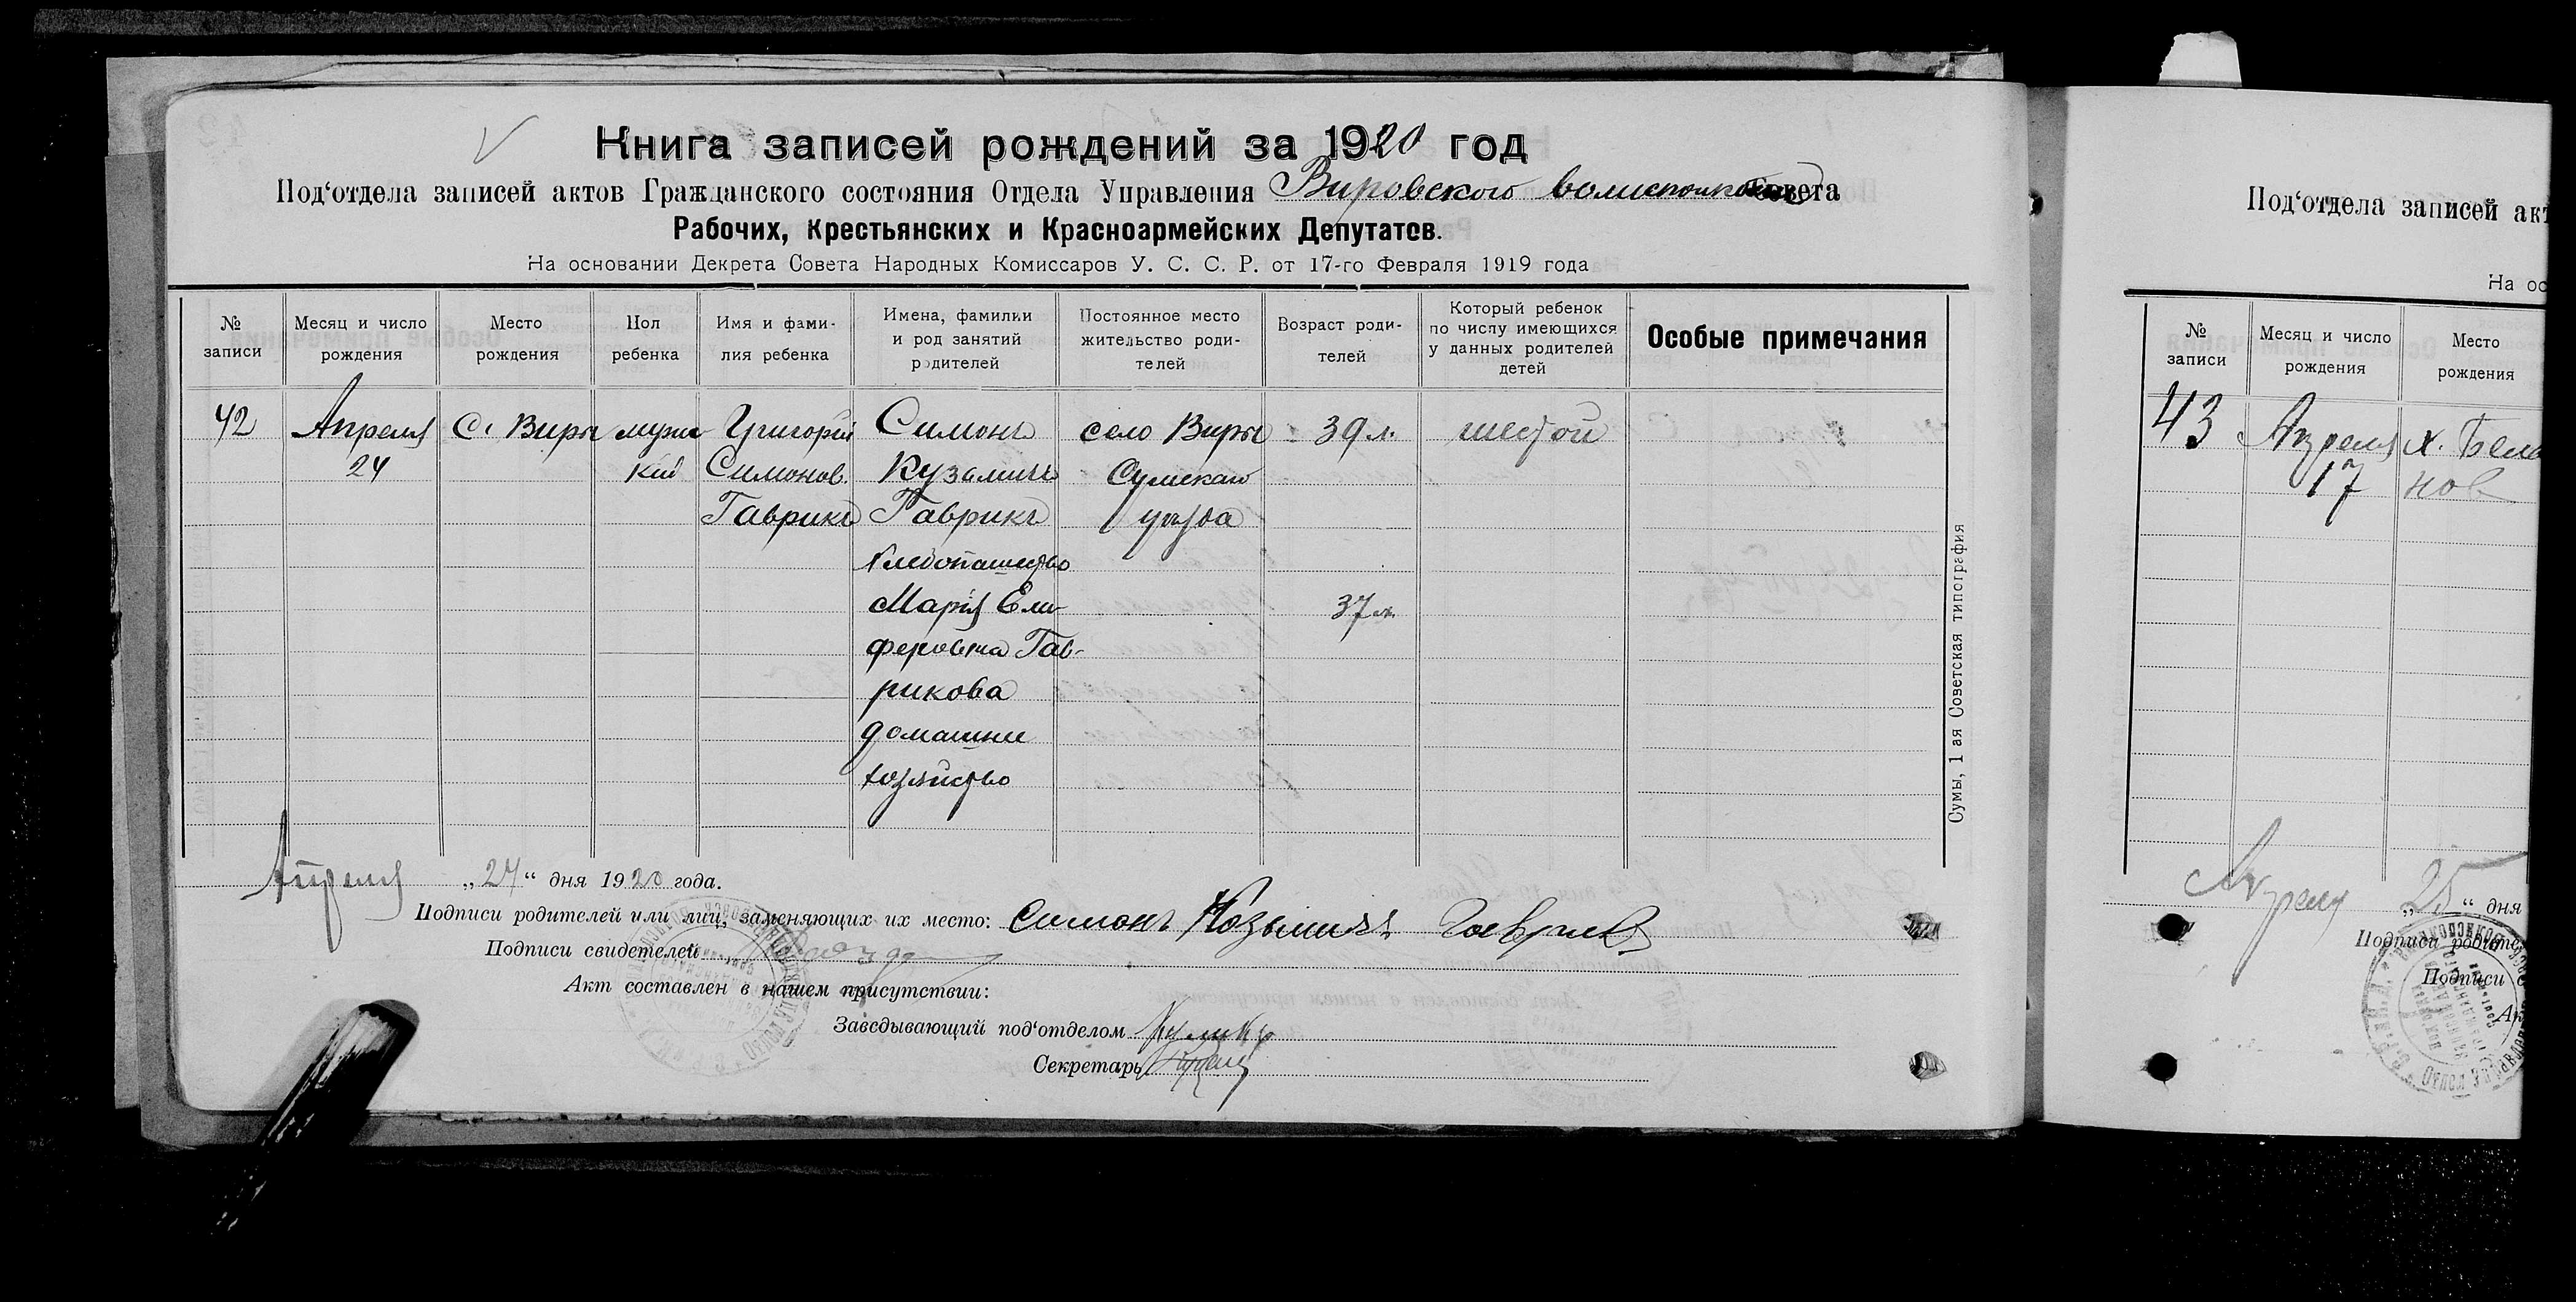 Книга записей рождений за 1920 год
Под‘отдела записей актов Гражданского состояния Отдела Управления Вировского волисполкома Совета
Рабочих, Крестьянских и Красноармейских Депутатов.
На основании Декрета Совета Народных Комиссаров У. С. С. Р. от 17-го Февраля 1919 года
№ записи
Месяц и число рождения
Место рождения
Пол ребенка
Имя и фами-
лия ребенка
Имена, фамилии
и род занятий
родителей
Постоянное место
жительство роди-
телей
Возраст роди-
телей
Который ребенок
по числу имеющихся
у данных родителей
детей
Особые примечания
42
Апреля
24
С. Виры
муж
кий
Григорій
Симонов.
Гаврикъ
Симонъ
Кузьмичъ
Гаврикъ
хлебопашество
Марія Ели-
феровна Гав-
рикова
домашнее
хозяйство
село Виры
Сумскаго
уезда
39 л.
37 л.
шестой
Сумы, 1 ая Советская типография
Апреля „24“ дня 1920 года.
Подписи родителей или лиц, заменяющих их место: Симонъ Козьмичъ Гаврикъ
Подписи свидетелей
Акт составлен в нашем присутствии:
Заведывающий под‘отделом
Секретарь
Под‘отдела записей акт
На ос
№ записи
Месяц и число рождения
Место рождения
43
Апреля
17
х. Бела
нов
Апреля „25“ дня
Подписи родите
Подписи с
Ак